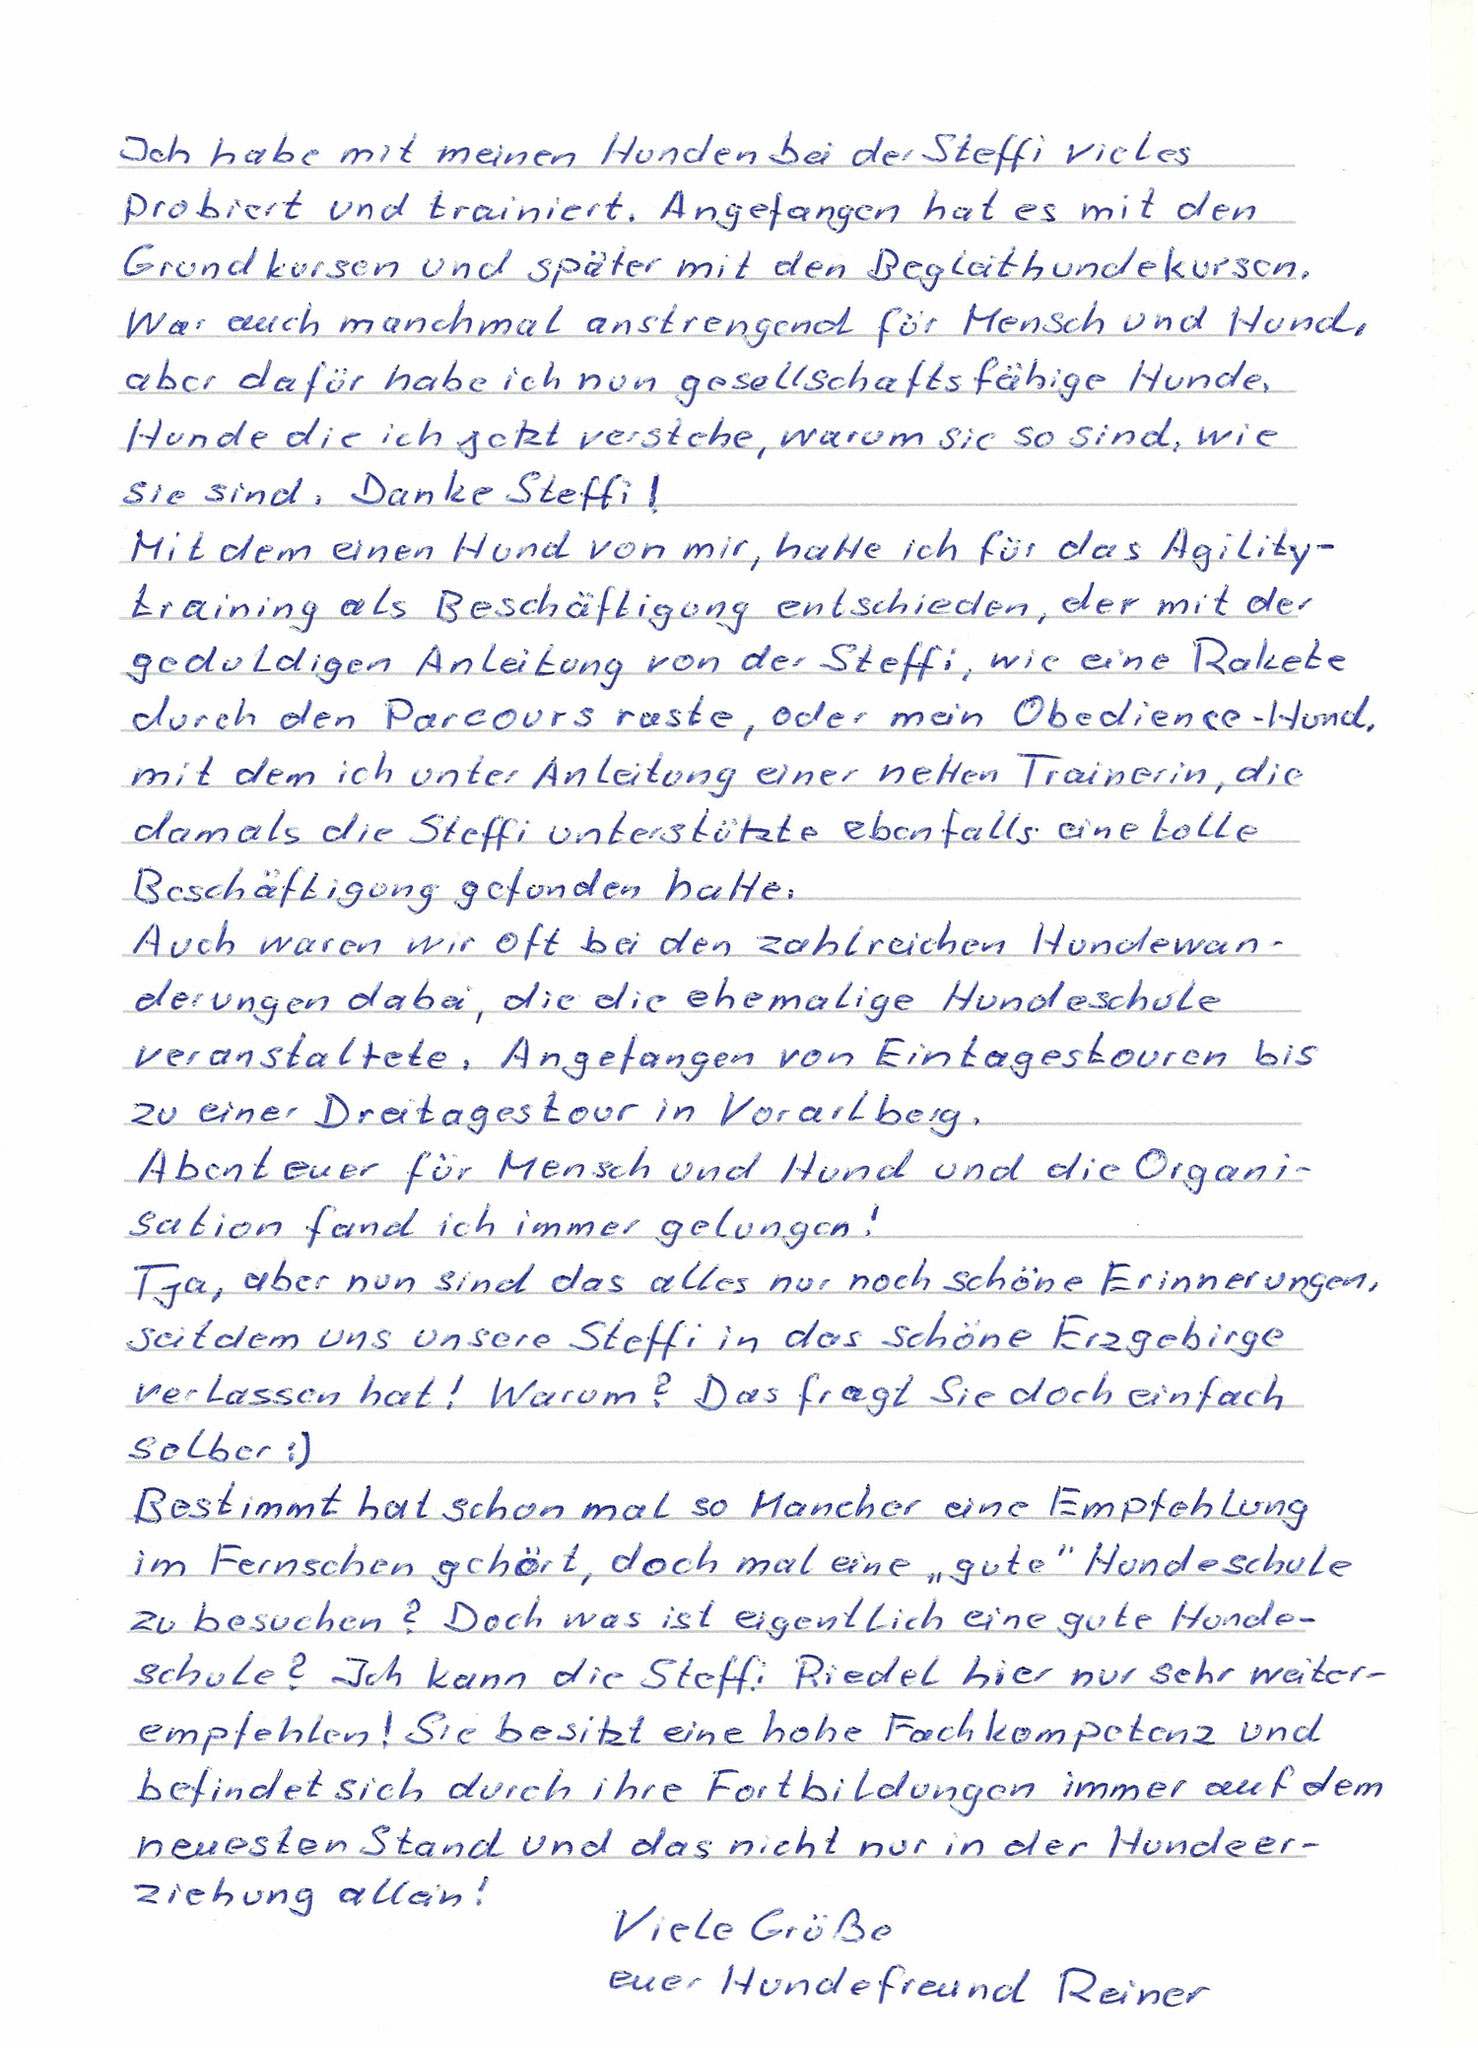 Ich habe mit meinen Hunden bei der Steffi vieles
probiert und trainiert. Angefangen hat es mit den
Grundkursen und später mit den Begleithundekursen.
War auch manchmal anstrengend für Mensch und Hund,
aber dafür habe ich nun gesellschaftsfähige Hunde.
Hunde die ich jetzt verstehe, warum sie so sind, wie
sie sind. Danke Steffi!
Mit dem einen Hund von mir, hatte ich für das Agility-
training als Beschäftigung entschieden, der mit der
geduldigen Anleitung von der Steffi, wie eine Rakete
durch den Parcours raste, oder mein Obedience-Hund,
mit dem ich unter Anleitung einer netten Trainerin, die
damals die Steffi unterstützte ebenfalls eine tolle
Beschäftigung gefunden hatte.
Auch waren wir oft bei den zahlreichen Hundewan-
derungen dabei, die die ehemalige Hundeschule
veranstaltete. Angefangen von Eintagestouren bis
zu einer Dreitagestour in Vorarlberg.
Abenteuer für Mensch und Hund und die Organi-
sation fand ich immer gelungen!
Tja, aber nun sind das alles nur noch schöne Erinnerungen,
seitdem uns unsere Steffi in das schöne Erzgebirge
verlassen hat! Warum? Das fragt Sie doch einfach
selber :)
Bestimmt hat schon mal so Mancher eine Empfehlung
im Fernsehen gehört, doch mal eine „gute" Hundeschule
zu besuchen? Doch was ist eigentlich eine gute Hunde-
schule? Ich kann die Steffi Riedel hier nur sehr weiter-
empfehlen! Sie besitzt eine hohe Fachkompetenz und
befindet sich durch ihre Fortbildungen immer auf dem
neuesten Stand und das nicht nur in der Hundeer-
ziehung allein!
Viele Grüße
euer Hundefreund Reiner